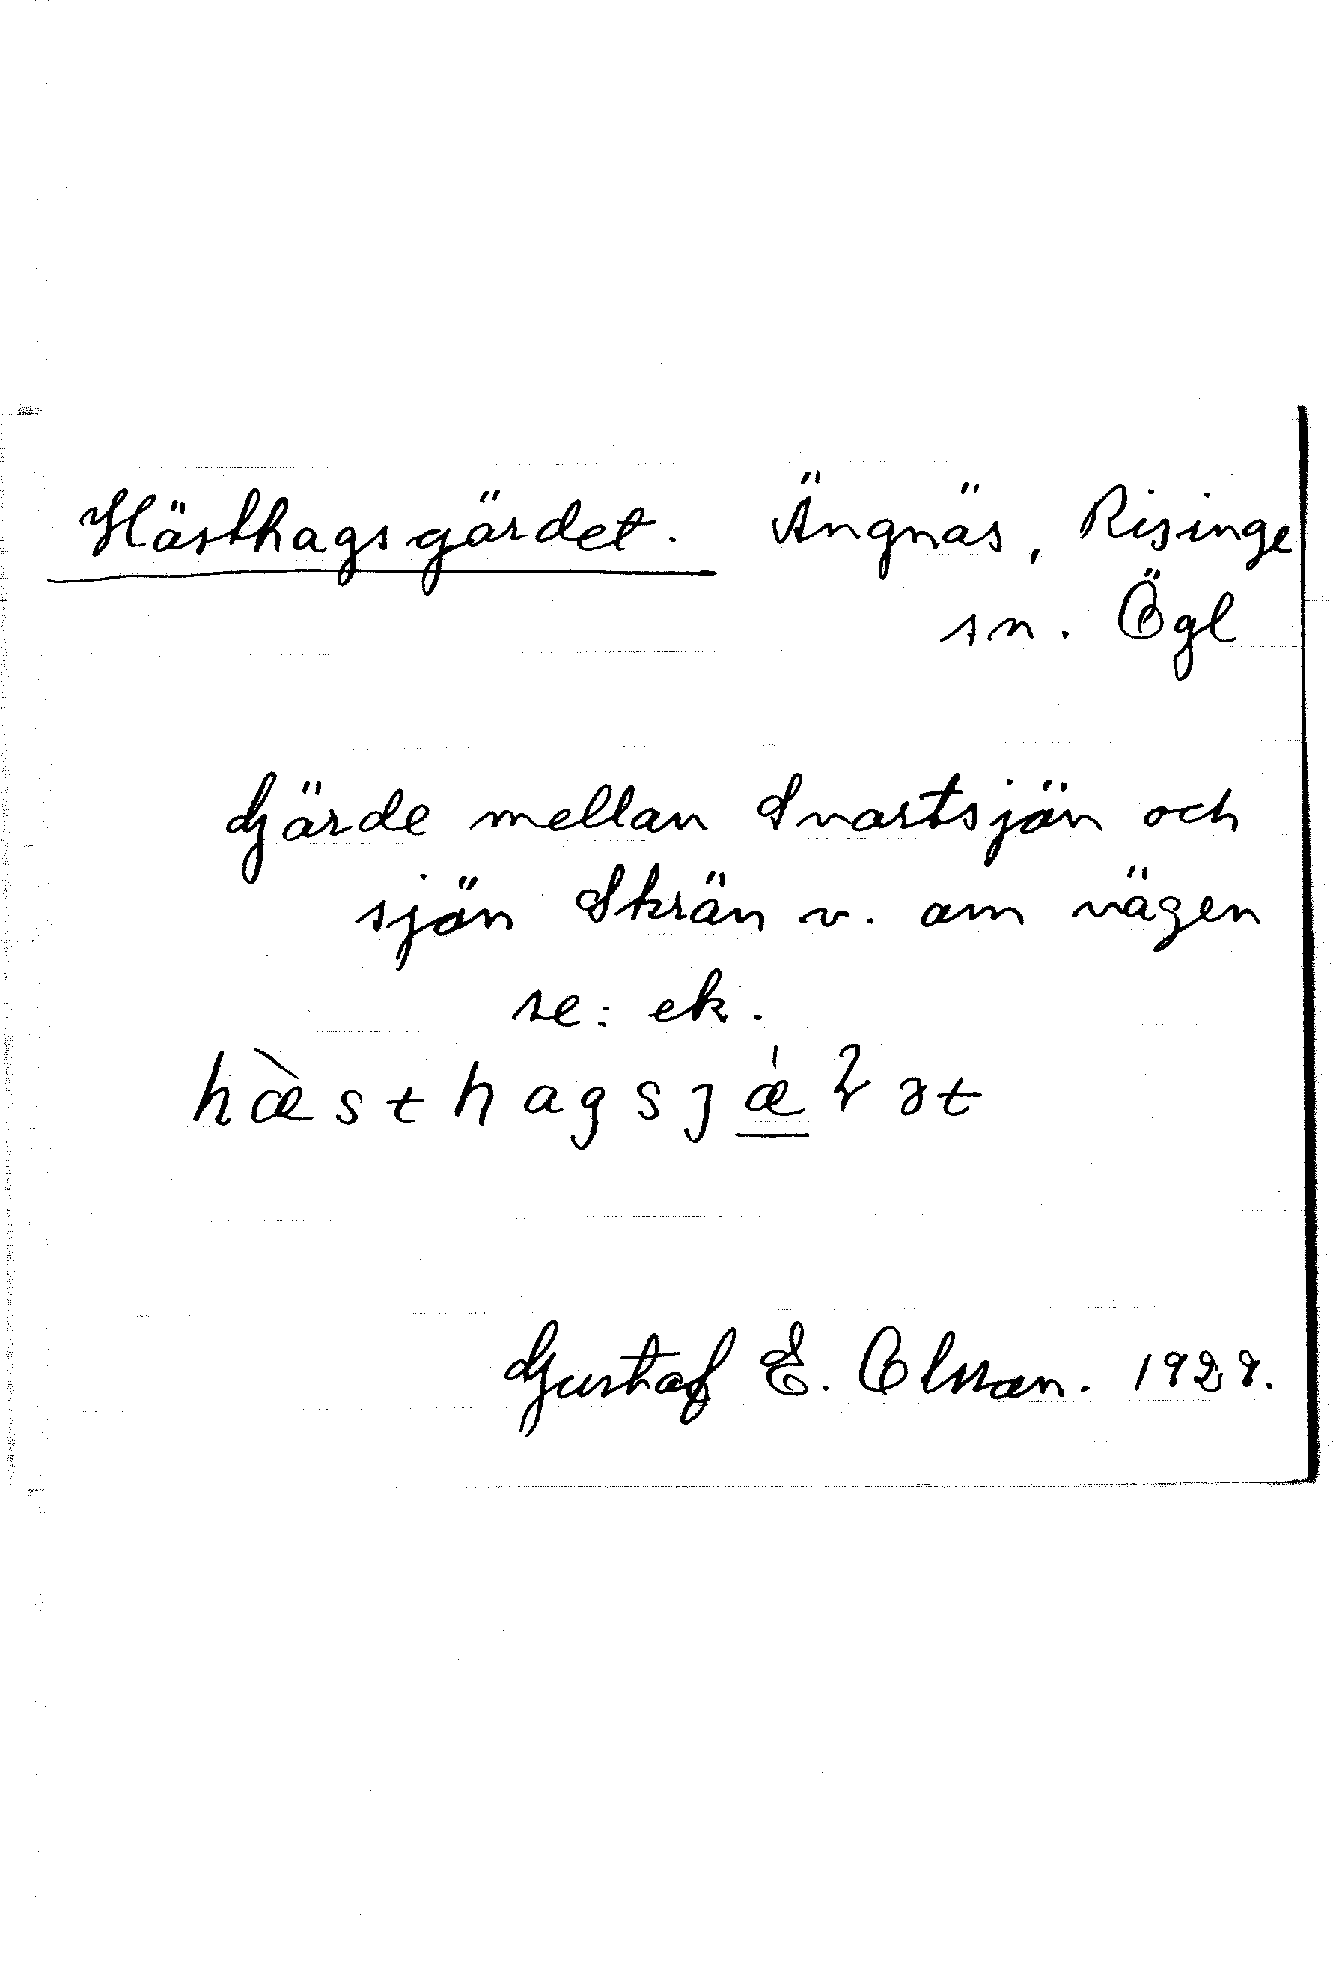 Hästhagsgärdet. Ängnäs, Risinge
sn. Ögl
Gärde mellan Svartsjön och
sjön Skrän v. om vägen
se: ek.
hæ̀sthagsjǽɽət
Gustaf E. Olsson. 1929.